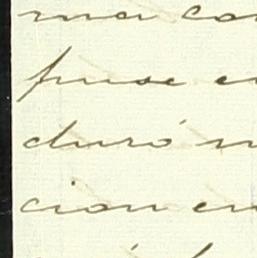 ma co
puse e
duró n
cion en